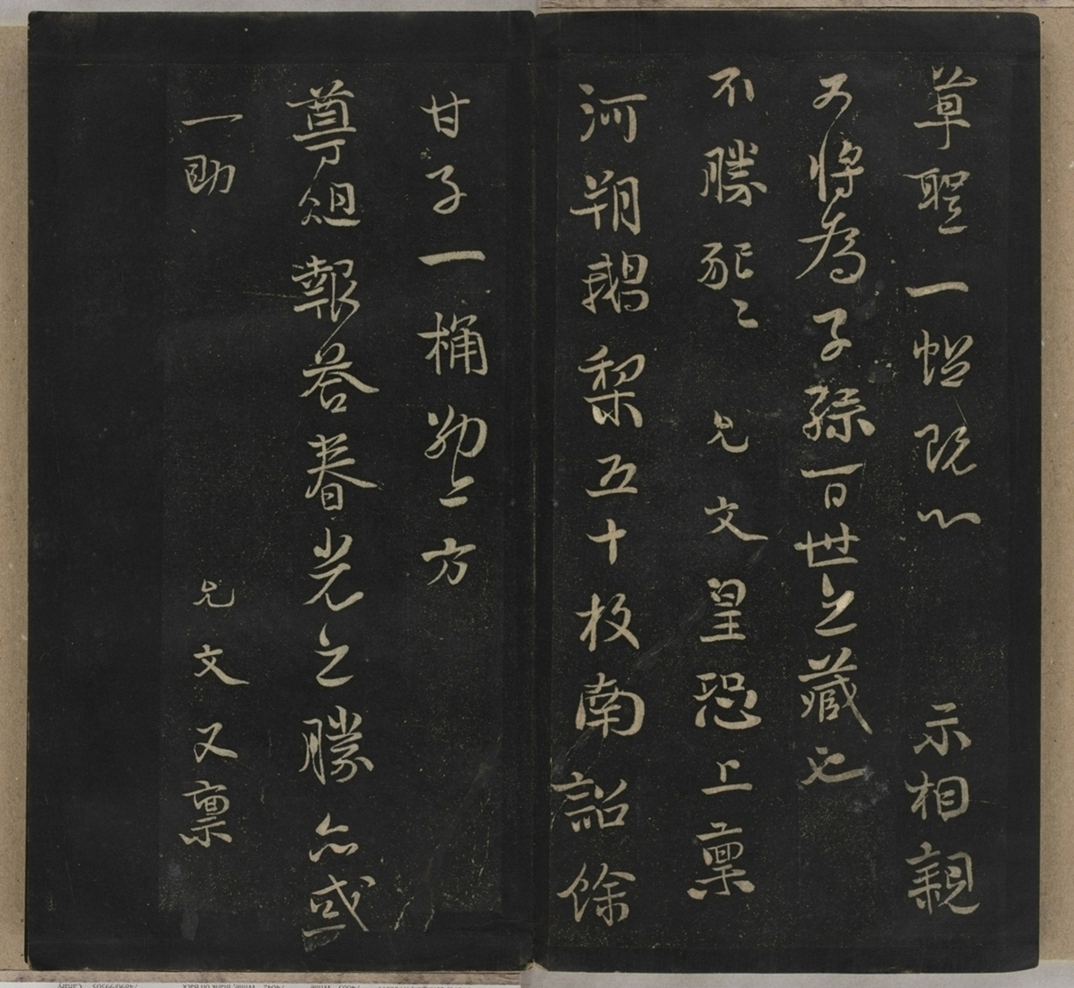 草聖一幅既以 示相親
可將為子孫百世之藏也
不勝 兄文皇恐上稟
河朔鵝梨五十枚南詔餘
甘子一桶上方
尊俎報答春光之勝亦或
一助 兄文又稟